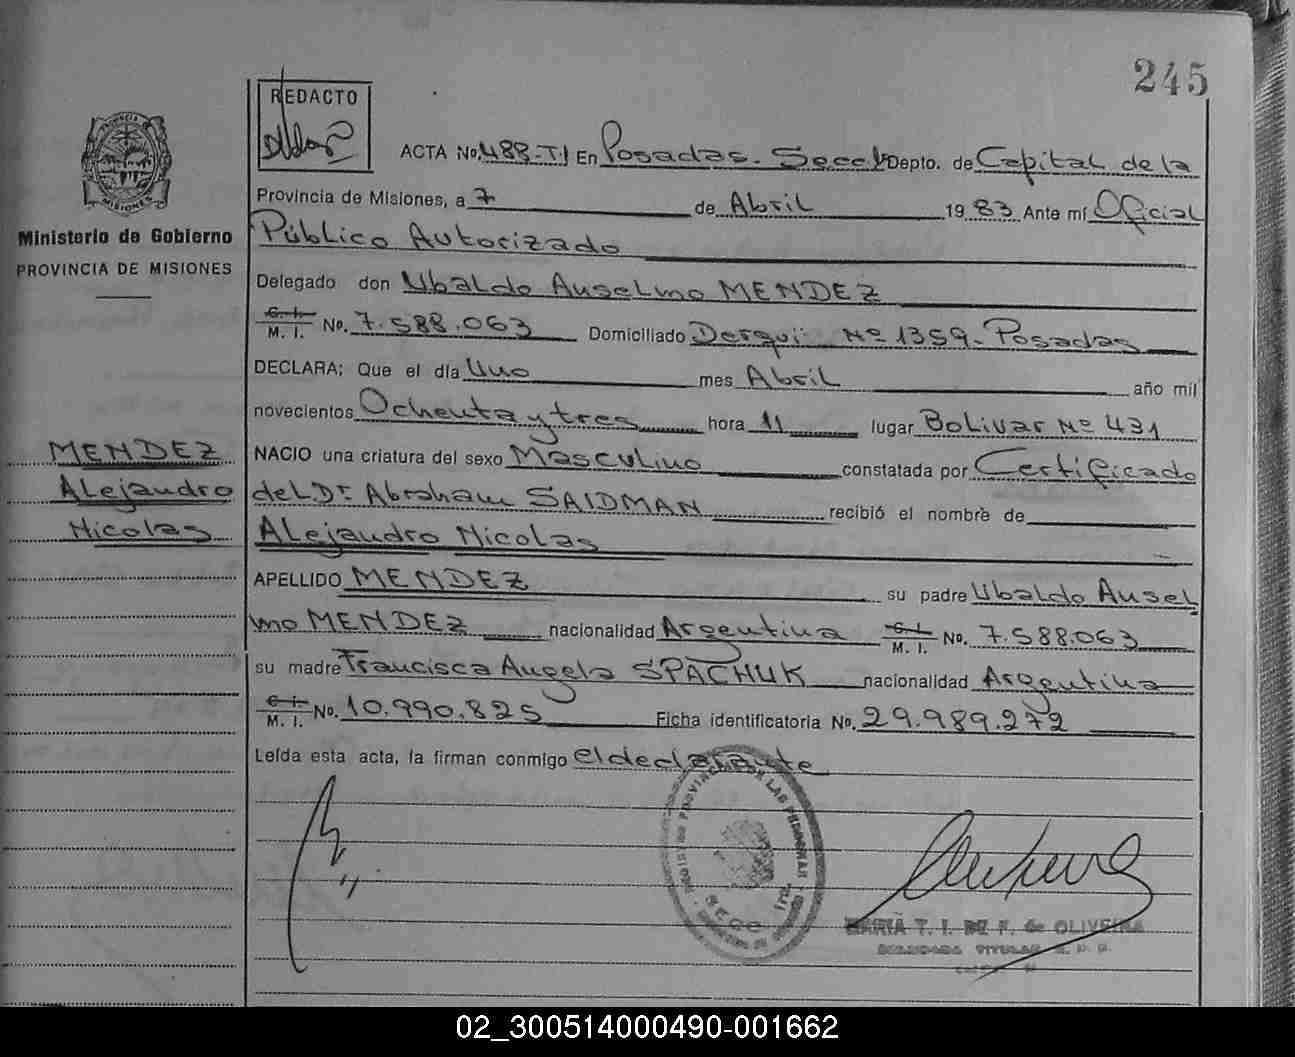 245
REDACTO
ACTA No. 488-T.I En Posadas. Secc. 1 Depto. de Capital de la
Provincia de Misiones, a 7 de Abril 1983 Ante mí Oficial
Ministerio de Gobierno
Público Autorizado
PROVINCIA DE MISIONES
Delegado don Ubaldo Anselmo MENDEZ
C. I. M. I. No. 7.588.063 Domiciliado Derqui Nº 1359. Posadas
DECLARA; Que el día Uno mes Abril año mil
novecientos Ochenta y tres hora 11 lugar Bolivar Nº 431
MENDEZ
Alejandro
Nicolas
NACIO una criatura del sexo Masculino constatada por Certificado
del Dr. Abraham SAIDMAN recibió el nombre de
Alejandro Nicolas
APELLIDO MENDEZ su padre Ubaldo Ansel
mo MENDEZ nacionalidad Argentina C. I. M. I. No. 7.588.063
su madre Francisca Angela SPACHUK nacionalidad Argentina
C. I. M. I. No. 10.990.825 Ficha identificatoria No. 29.989.272
Leída esta acta, la firman conmigo el declarante
MARIA T. I. DE F. de OLIVEIRA
02_300514000490-001662